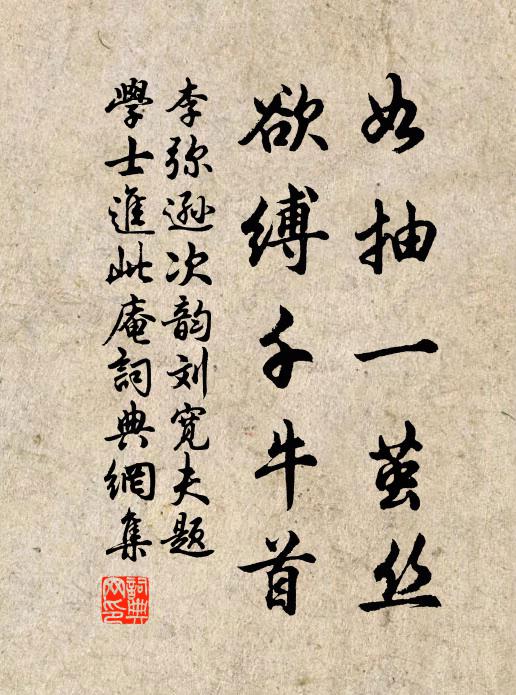 如抽一茧丝
欲缚千牛首
李弥逊次韵刘宽夫题
學士進此庵詞典網集
詞典网印